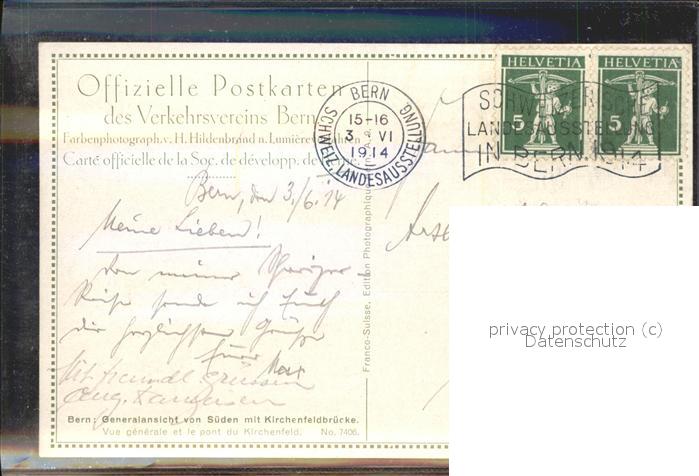 Offizielle Postkarten
des Verkehrsvereins Bern
Farbenphotograph. v. H. Hildenbrand n. Lumière
Carte officielle de la Soc. de développ. de
HELVETIA
5
HELVETIA
5
BERN
15-16
3. VI
1914
SCHWEIZ. LANDESAUSSTELLUNG
SCHWEIZERISCHE
LANDESAUSSTELLUNG
IN BERN 1914
Bern, den 3./6. 14
Meine Lieben!
Von meiner Schweizer-
Reise sende ich Euch
die herzlichsten Grüße
Euer Max
Mit freundl. Grüssen
Aug.
Franco-Suisse, Edition Photographique
privacy protection (c)
Datenschutz
Bern: Generalansicht von Süden mit Kirchenfeldbrücke.
Vue générale et le pont du Kirchenfeld. No. 7406.